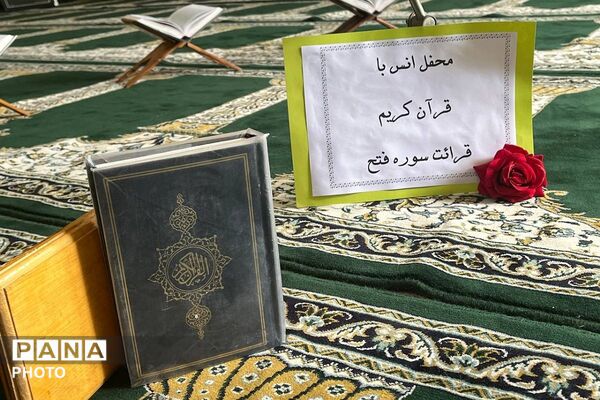 محفل انس با
قرآن کریم
قرائت سوره فتح
القرآن الکریم
PANA
PHOTO